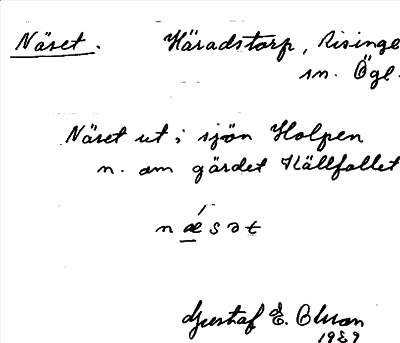 Näset. Häradstorp, Risinge
sn. Ögl.
Näset ut i sjön Holpen
n. om gärdet Källfallet
næ´sət
Gustaf E. Olsson
1939